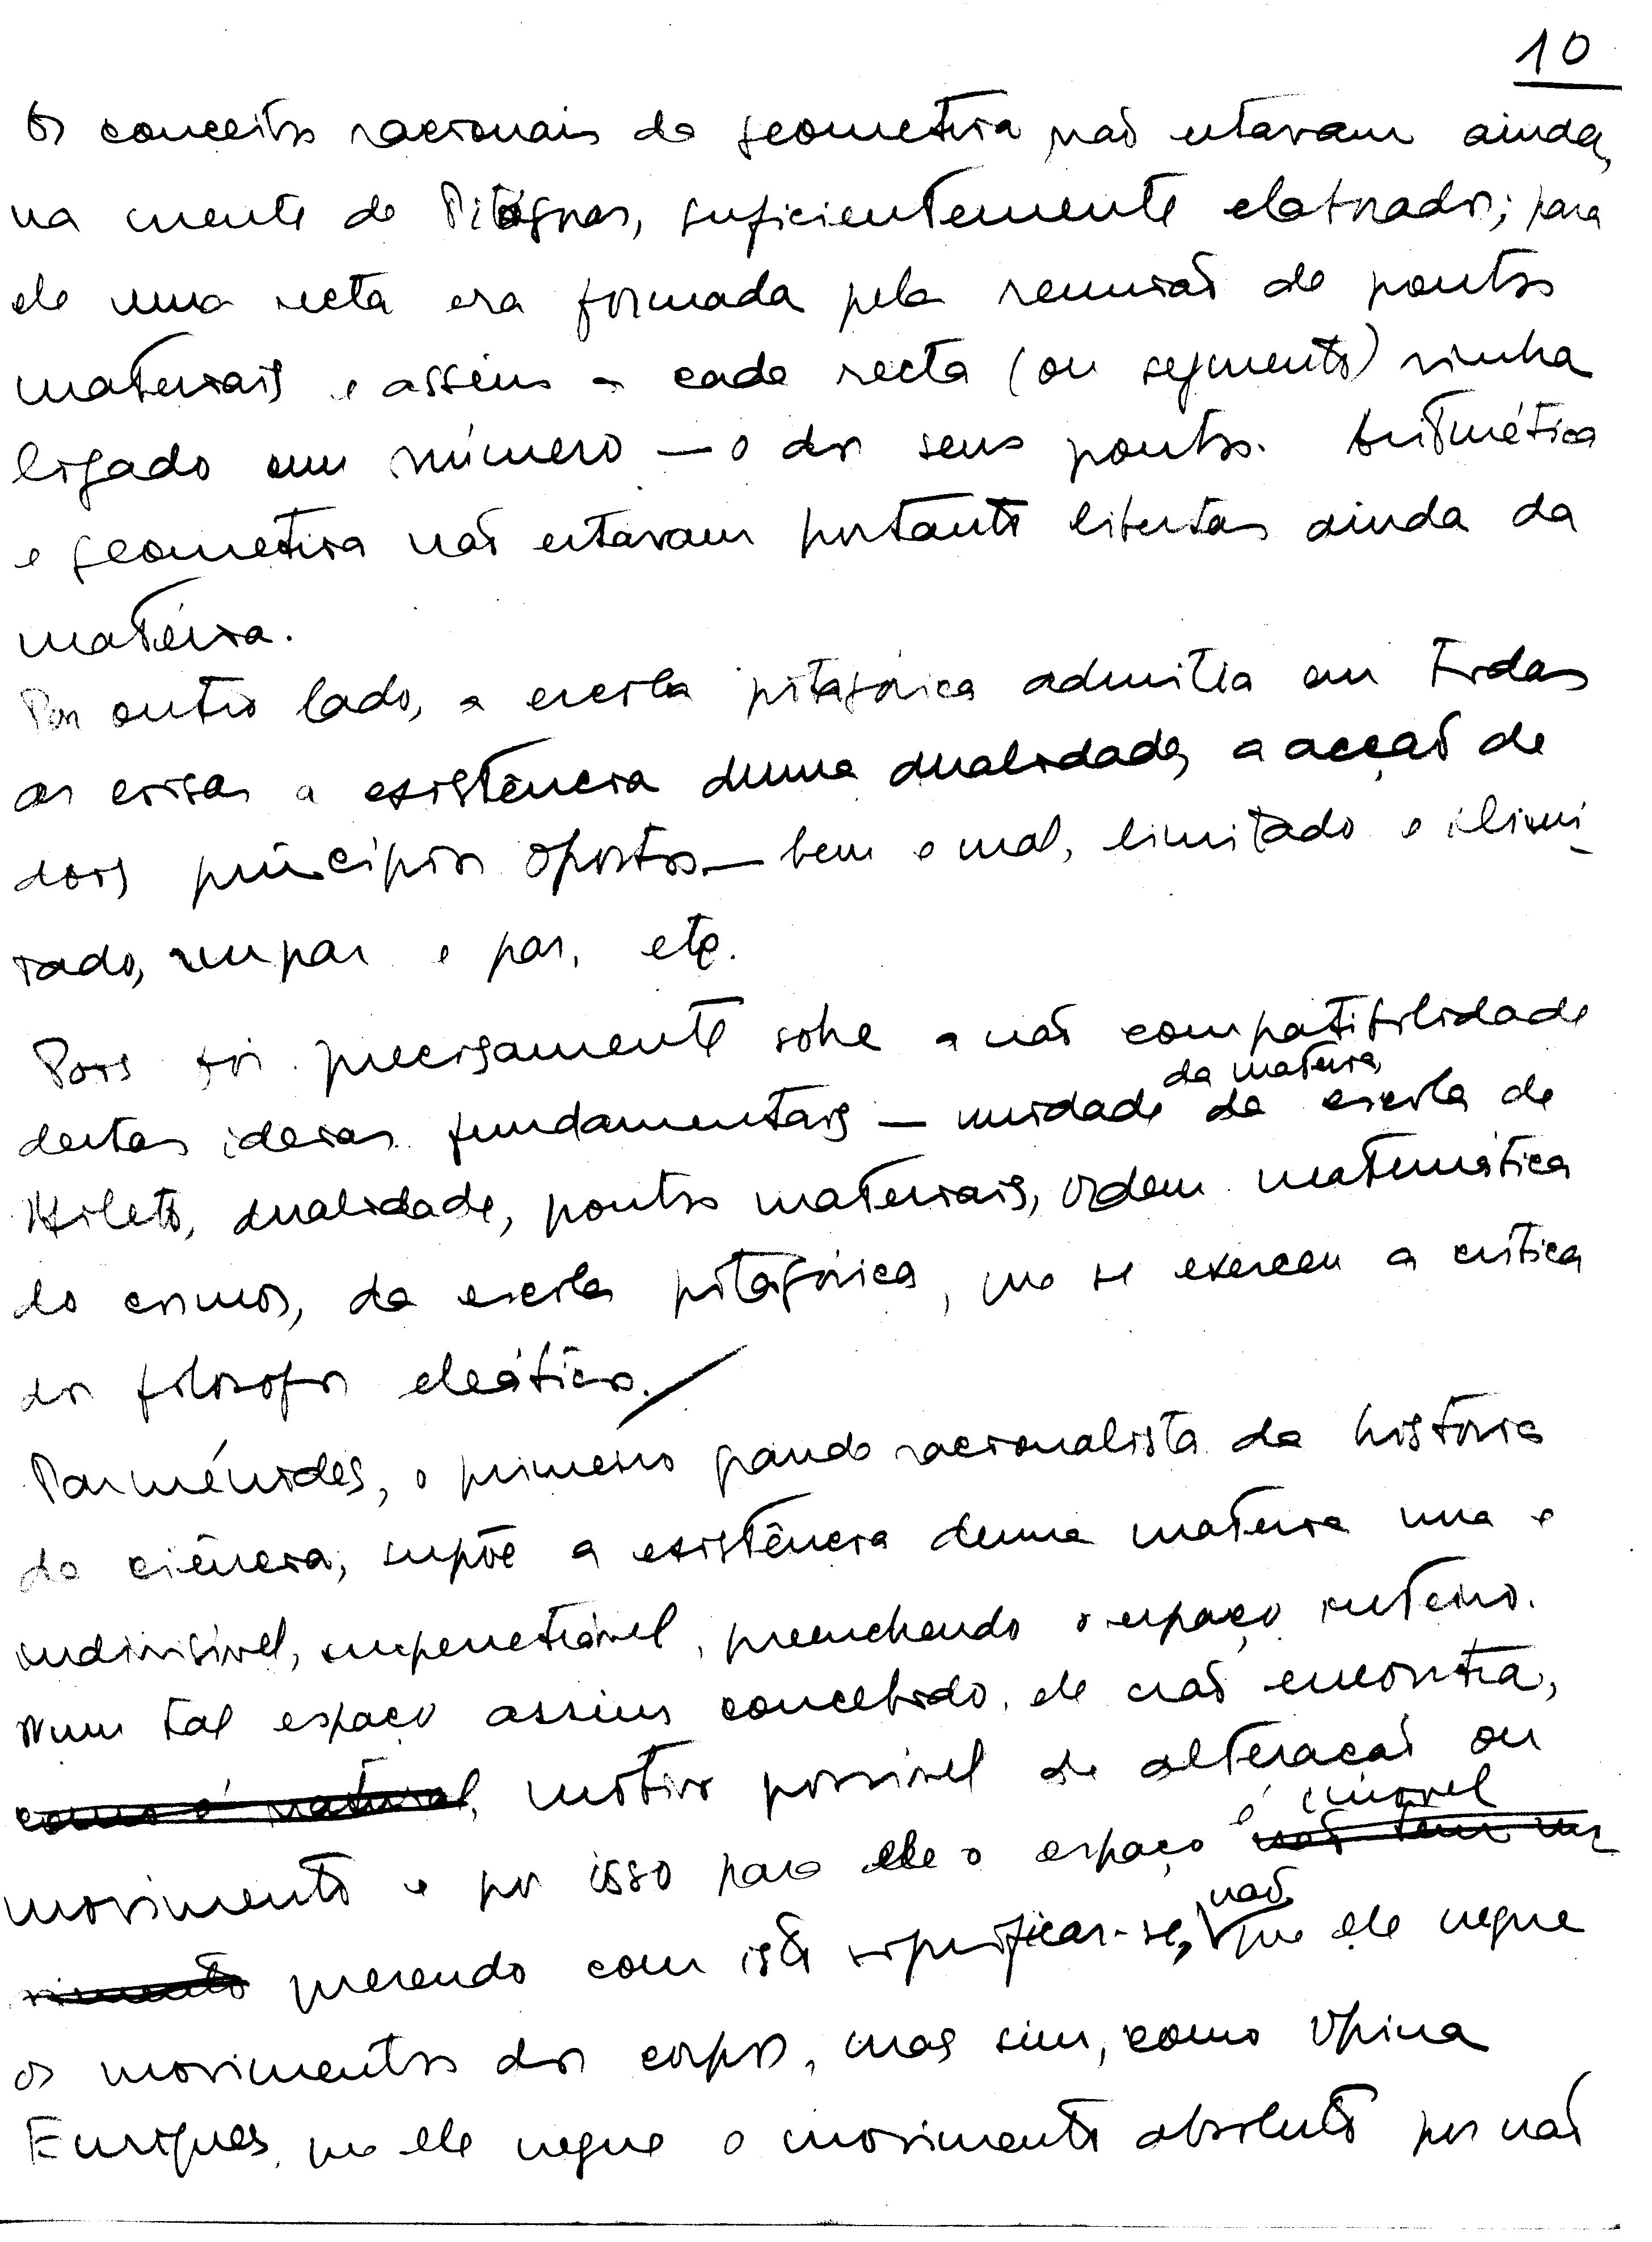 10
Os conceitos racionais da geometria não estavam ainda,
na mente de Pitágoras, suficientemente elaborados; para
ele uma recta era formada pela reunião de pontos
materiais e assim a cada recta (ou segmento) vinha
ligado um número — o dos seus pontos. Aritmética
e geometria não estavam portanto libertas ainda da
matéria.
Por outro lado, a escola pitagórica admitia em todas
as coisas a existência duma dualidade, a acção de
dois princípios opostos — bem e mal, limitado e ilimi-
tado, impar e par, etc.
Pois foi precisamente sobre a não compatibilidade
destas ideias fundamentais — unidade da matéria da escola de
Mileto, dualidade, pontos materiais, ordem matemática
do cosmos, da escola pitagórica, que se exerceu a crítica
dos filosofos eleáticos.
Parménides, o primeiro grande racionalista da história
da ciência, supõe a existência duma materia una e
indivisivel, impenetrável, preenchendo o espaço inteiro.
Num tal espaço assim concebido, ele não encontra,
como é natural, motivo possivel de alteração ou
movimento e por isso para ele o espaço é imóvel não tem mo-
vimento querendo com isto significar-se, não que ele negue
os movimentos dos corpos, mas sim, como opina
Enriques, que ele negue o movimento absoluto por não